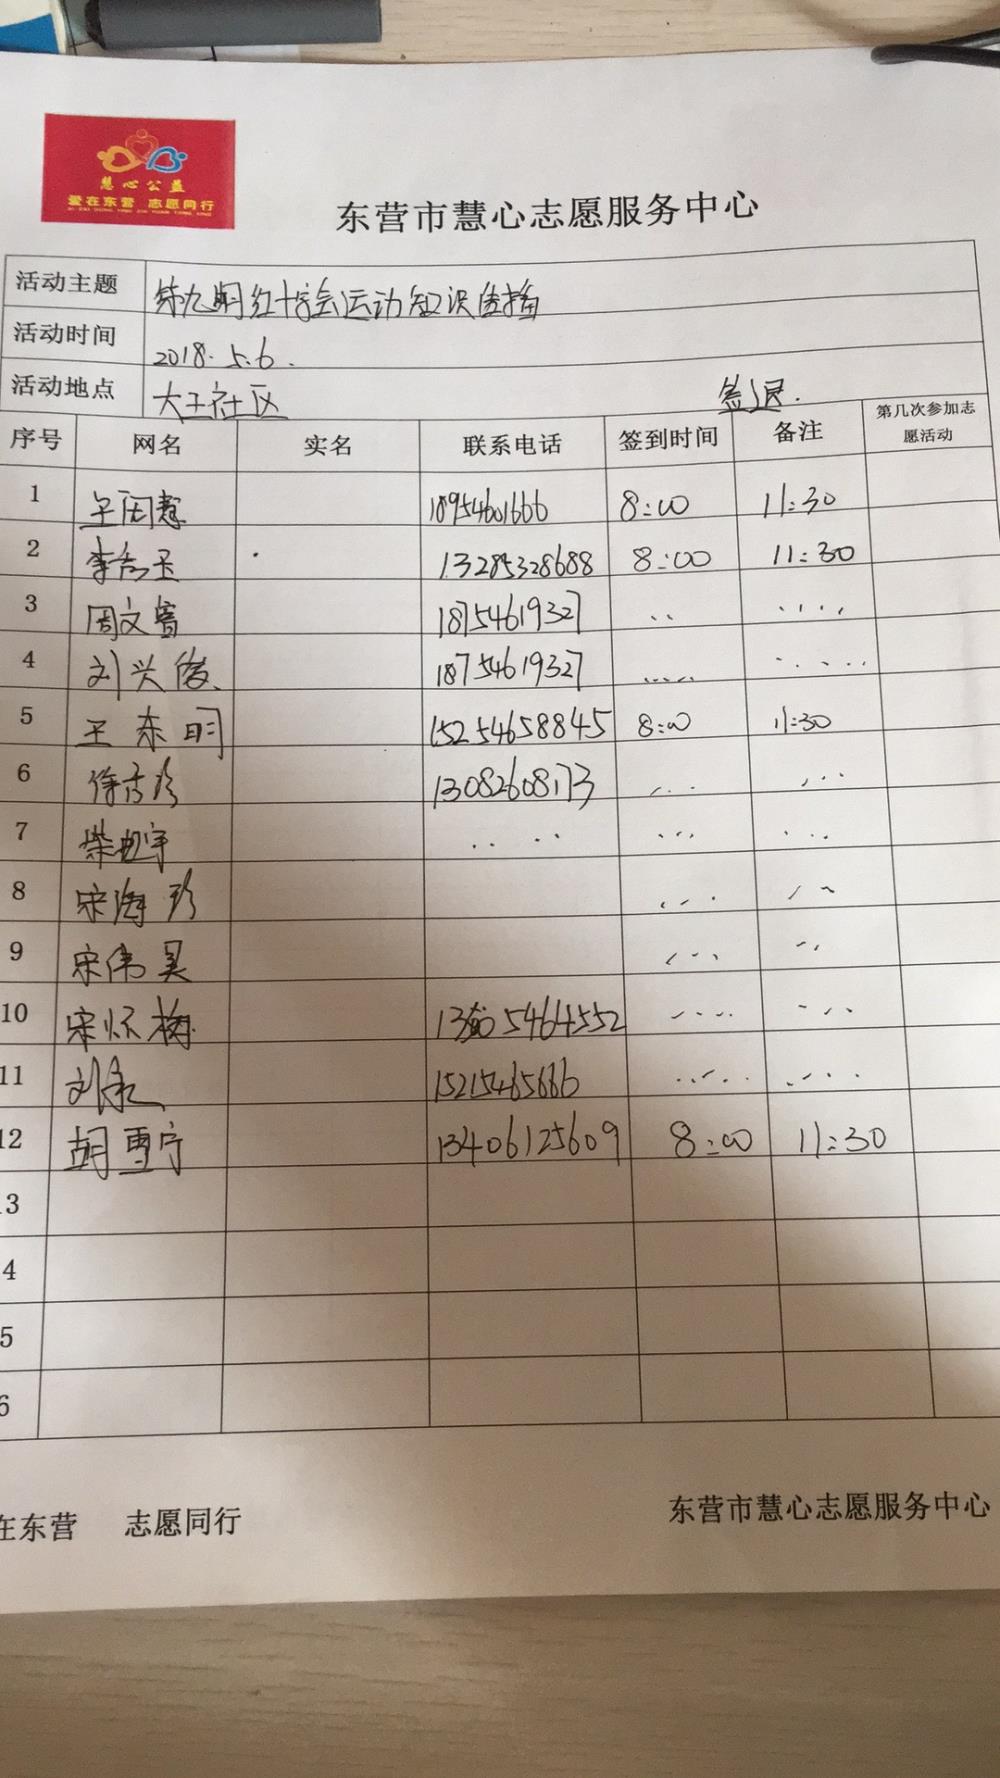 慧心公益
爱在东营 志愿同行
东营市慧心志愿服务中心
活动主题 第九期红十字会运动知识传播
活动时间 2018.5.6.
活动地点 大王社区 签退.
序号 网名 实名 联系电话 签到时间 备注 第几次参加志愿活动
1 18954601666 8:00 11:30
2 13285328688 8:00 11:30
3 周文 18754619327
4 刘兴俊 18754619327
5 王东明 15254658845 8:00 11:30
6 徐秀珍 13082608173
7 柴旭宇
8 宋海珍
9 宋伟昊
10 宋怀梅 5464552
11 刘 15215465666
12 胡雪宁 13406125609 8:00 11:30
13
4
5
6
在东营 志愿同行 东营市慧心志愿服务中心